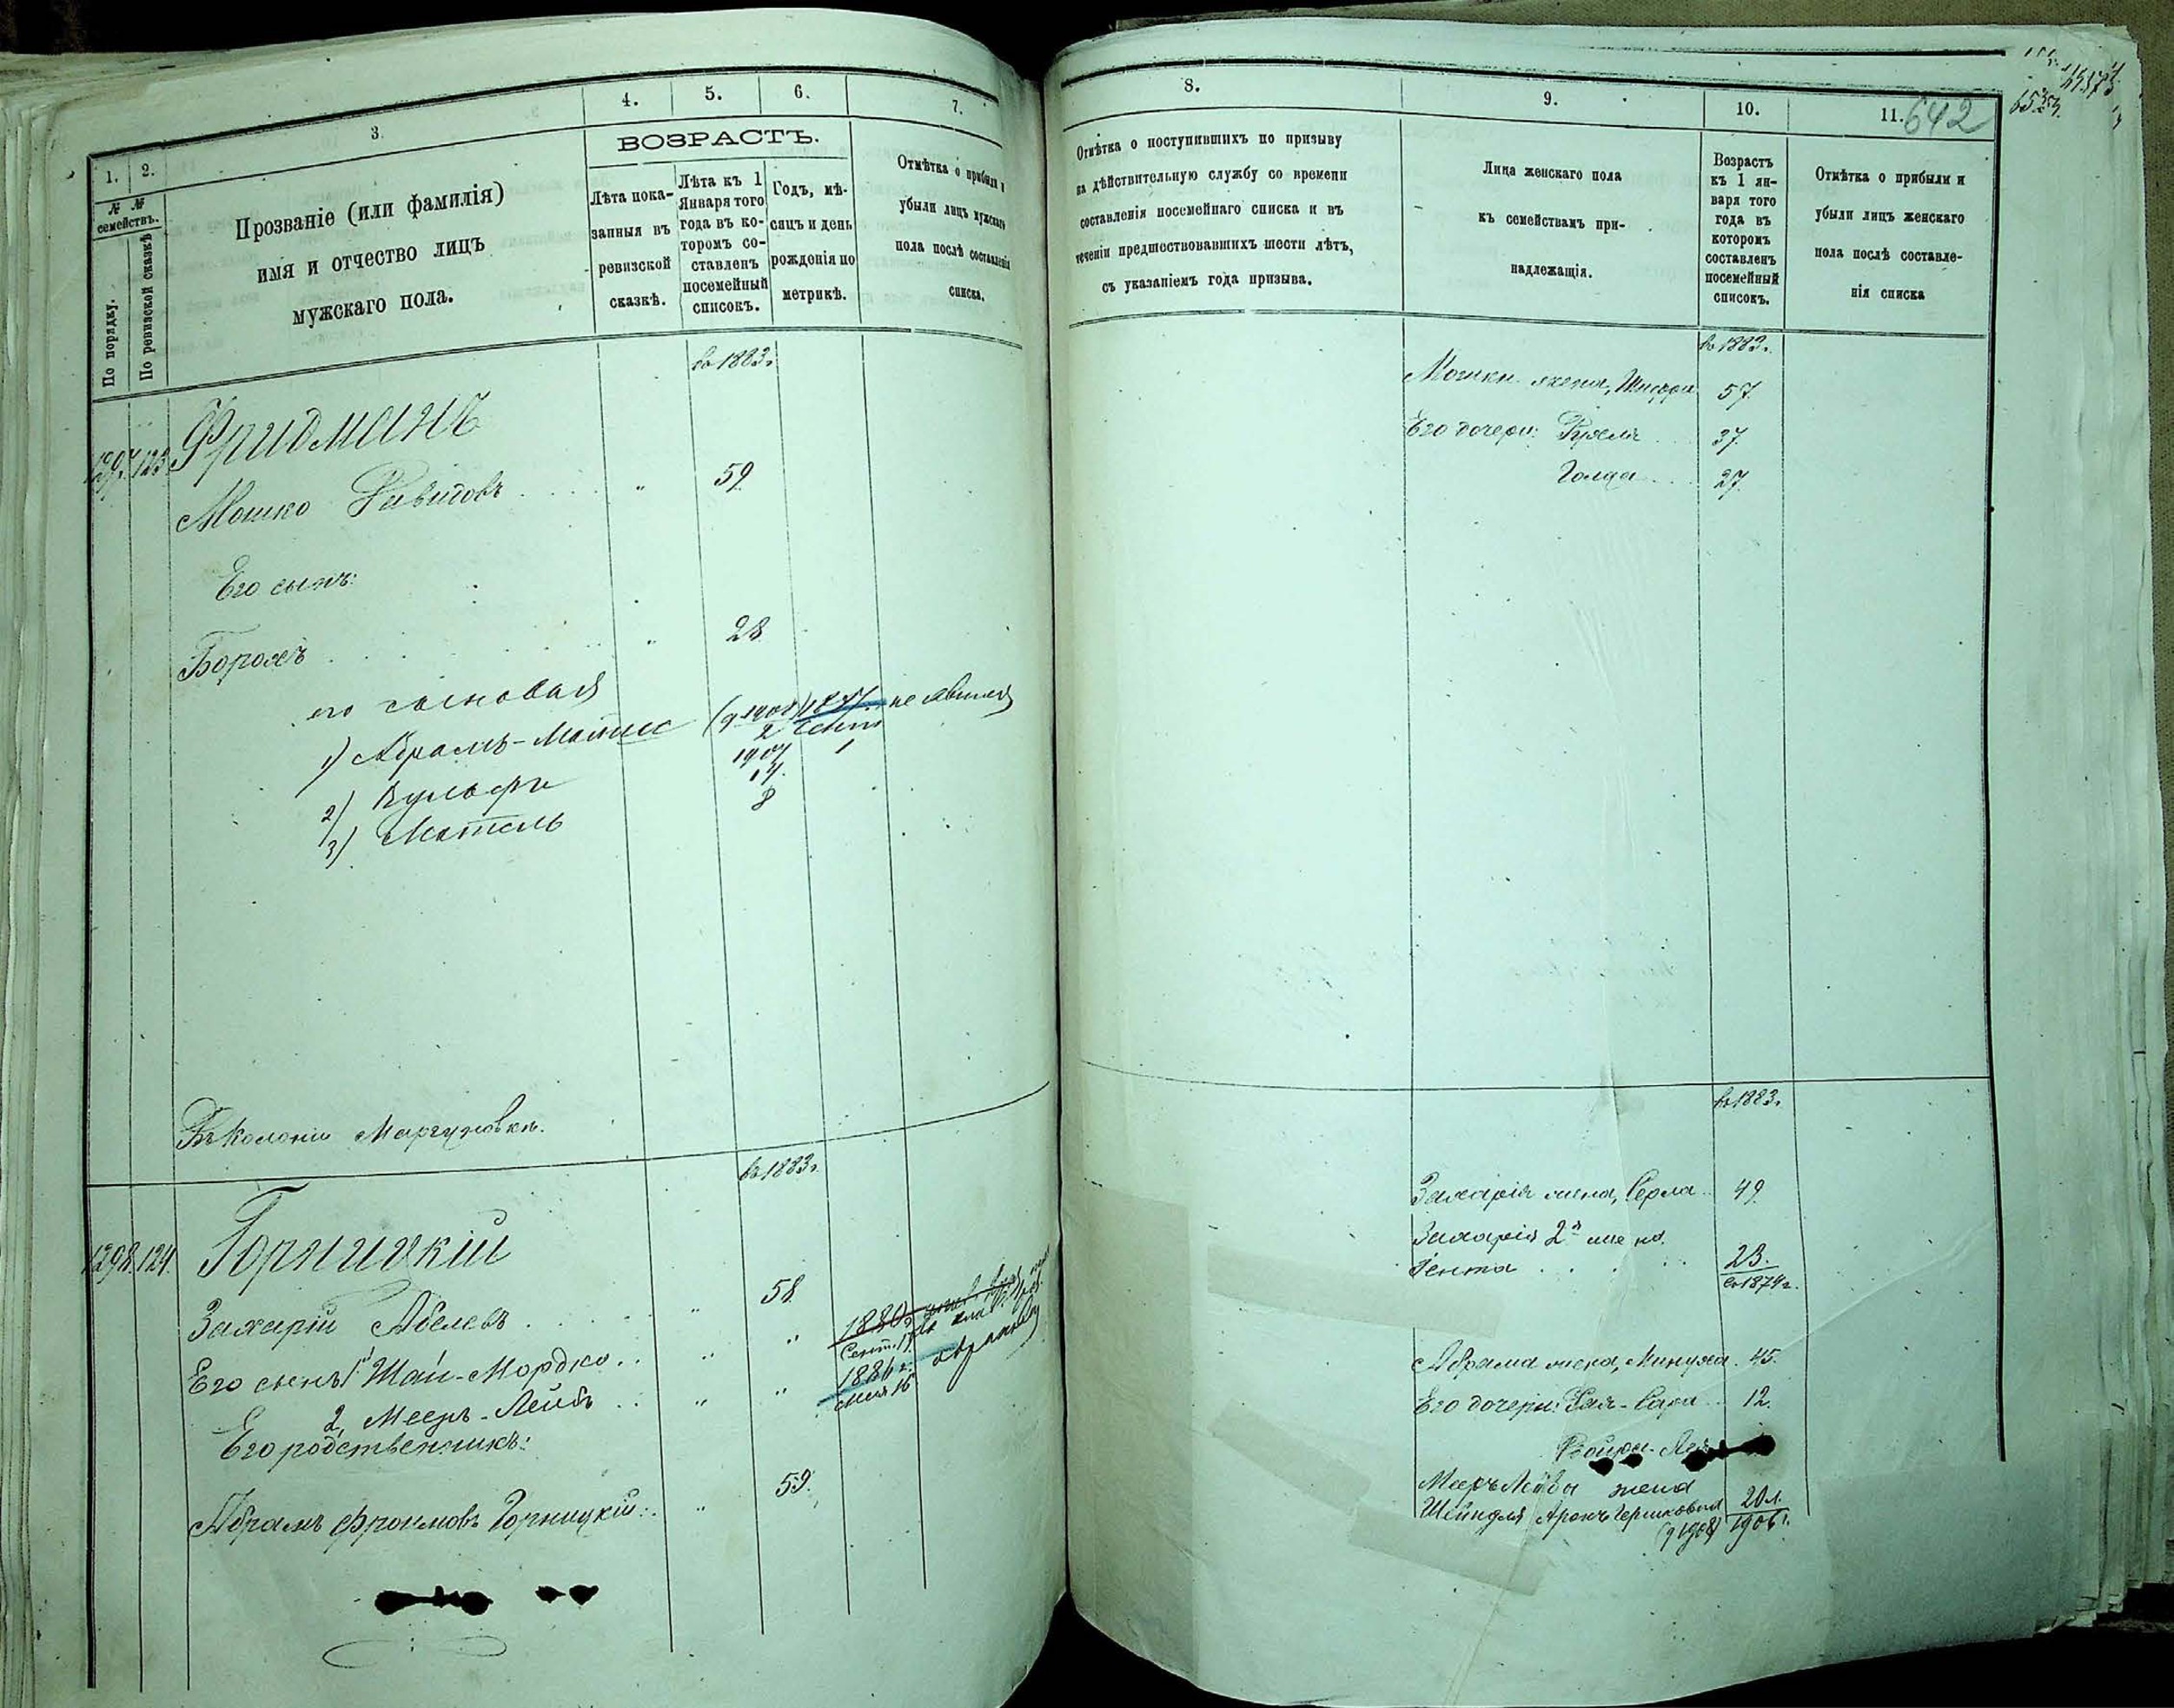 1.
2.
3.
4.
5.
6.
7.
№ №
семействъ.
По порядку.
По ревизской сказкѣ
Прозваніе (или фамилія)
имя и отчество лицъ
мужскаго пола.
ВОЗРАСТЪ.
Лѣта пока-
занныя въ
ревизской
сказкѣ.
Лѣта къ 1
Января того
года въ ко-
торомъ со-
ставленъ
посемейный
списокъ.
Годъ, мѣ-
сяцъ и день
рожденія по
метрикѣ.
Отмѣтка о прибыли и
убыли лицъ мужскаго
пола послѣ составленія
списка.
въ 1883г.
1297. 123. Фридманъ
Мошко Давидовъ 59.
Его сынъ:
Борохъ 28.
его сыновья
1) Абрамъ- 1887 не явился
2 1907 1
2) Вульфъ 14.
3) Мотель 8
Въ Колоніи
въ 1883г.
1298. 124. Горницкій
Захарій Абелевъ 58.
Его сынъ 1, Шая-Мордко 1880
Сент. 17
2, Мееръ-Лейбъ 1886 г.
16
Его родственникъ:
Абрамъ Фроимовъ Горницкій 59.
8.
9.
10.
11.
642
Отмѣтка о поступившихъ по призыву
на дѣйствительную службу со времени
составленія посемейнаго списка и въ
теченіи предшествовавшихъ шести лѣтъ,
съ указаніемъ года призыва.
Лица женскаго пола
къ семействамъ при-
надлежащія.
Возрастъ
къ 1 ян-
варя того
года въ
которомъ
составленъ
посемейный
списокъ.
Отмѣтка о прибыли и
убыли лицъ женскаго
пола послѣ составле-
нія списка
въ 1883г.
Мошки жена, 57.
Его дочери: 37.
Голда 27.
въ 1883г.
Захарія жена, Перла 49.
Захарія 2я жена
Гента 23.
въ 1879г.
Абрама жена, Минуха 45.
Его дочери: Хая-Сара 12.
Мееръ Лейбы жена
Шейндля Аронъ Гершковна 20 л.
(1908) 1906 г.